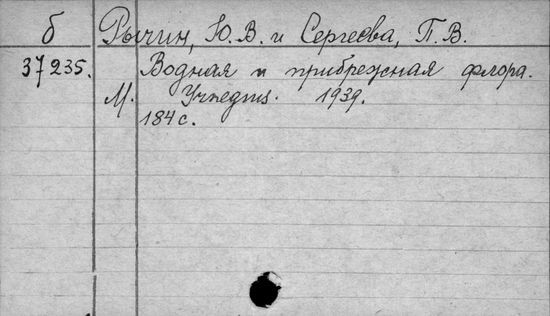 б Рычин, Ю. В. и Сергеева, П. В.
37235. Водная и прибрежная флора.
М. Учпедгиз. 1939.
184 с.